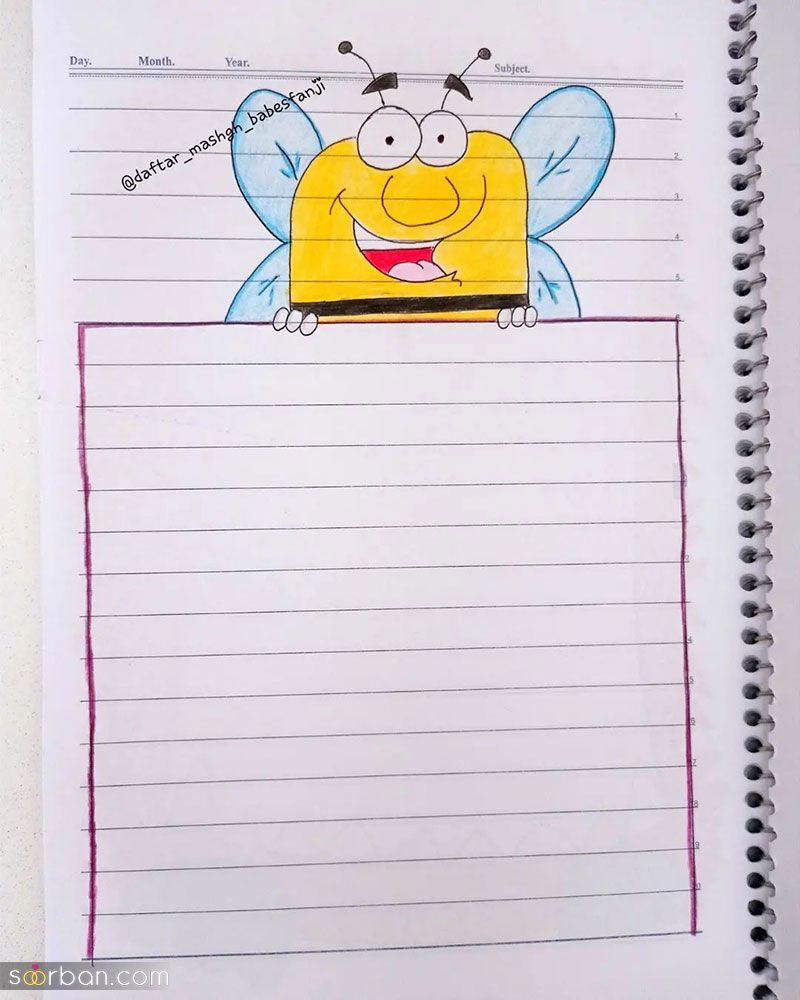 Day. Month. Year. Subject.
@daftar_mashgh_babesfanji
1
2
3
4
5
soorban.com